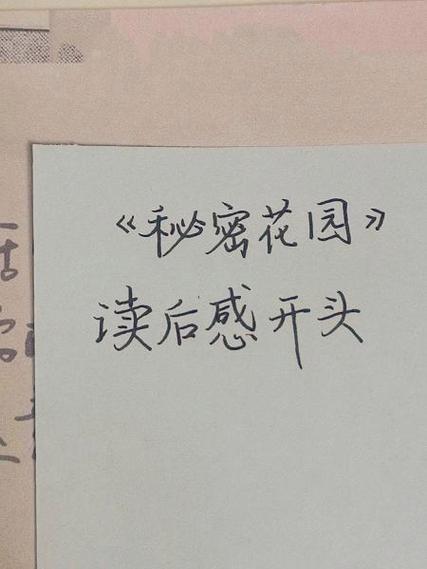 《秘密花园》
读后感开头